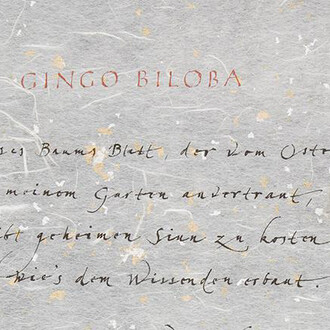 GINGO BILOBA
ses Baums Blatt, der vom Oste
meinem Garten anvertraut,
bt geheimen Sinn zu kosten
wie's dem Wissenden erbaut.